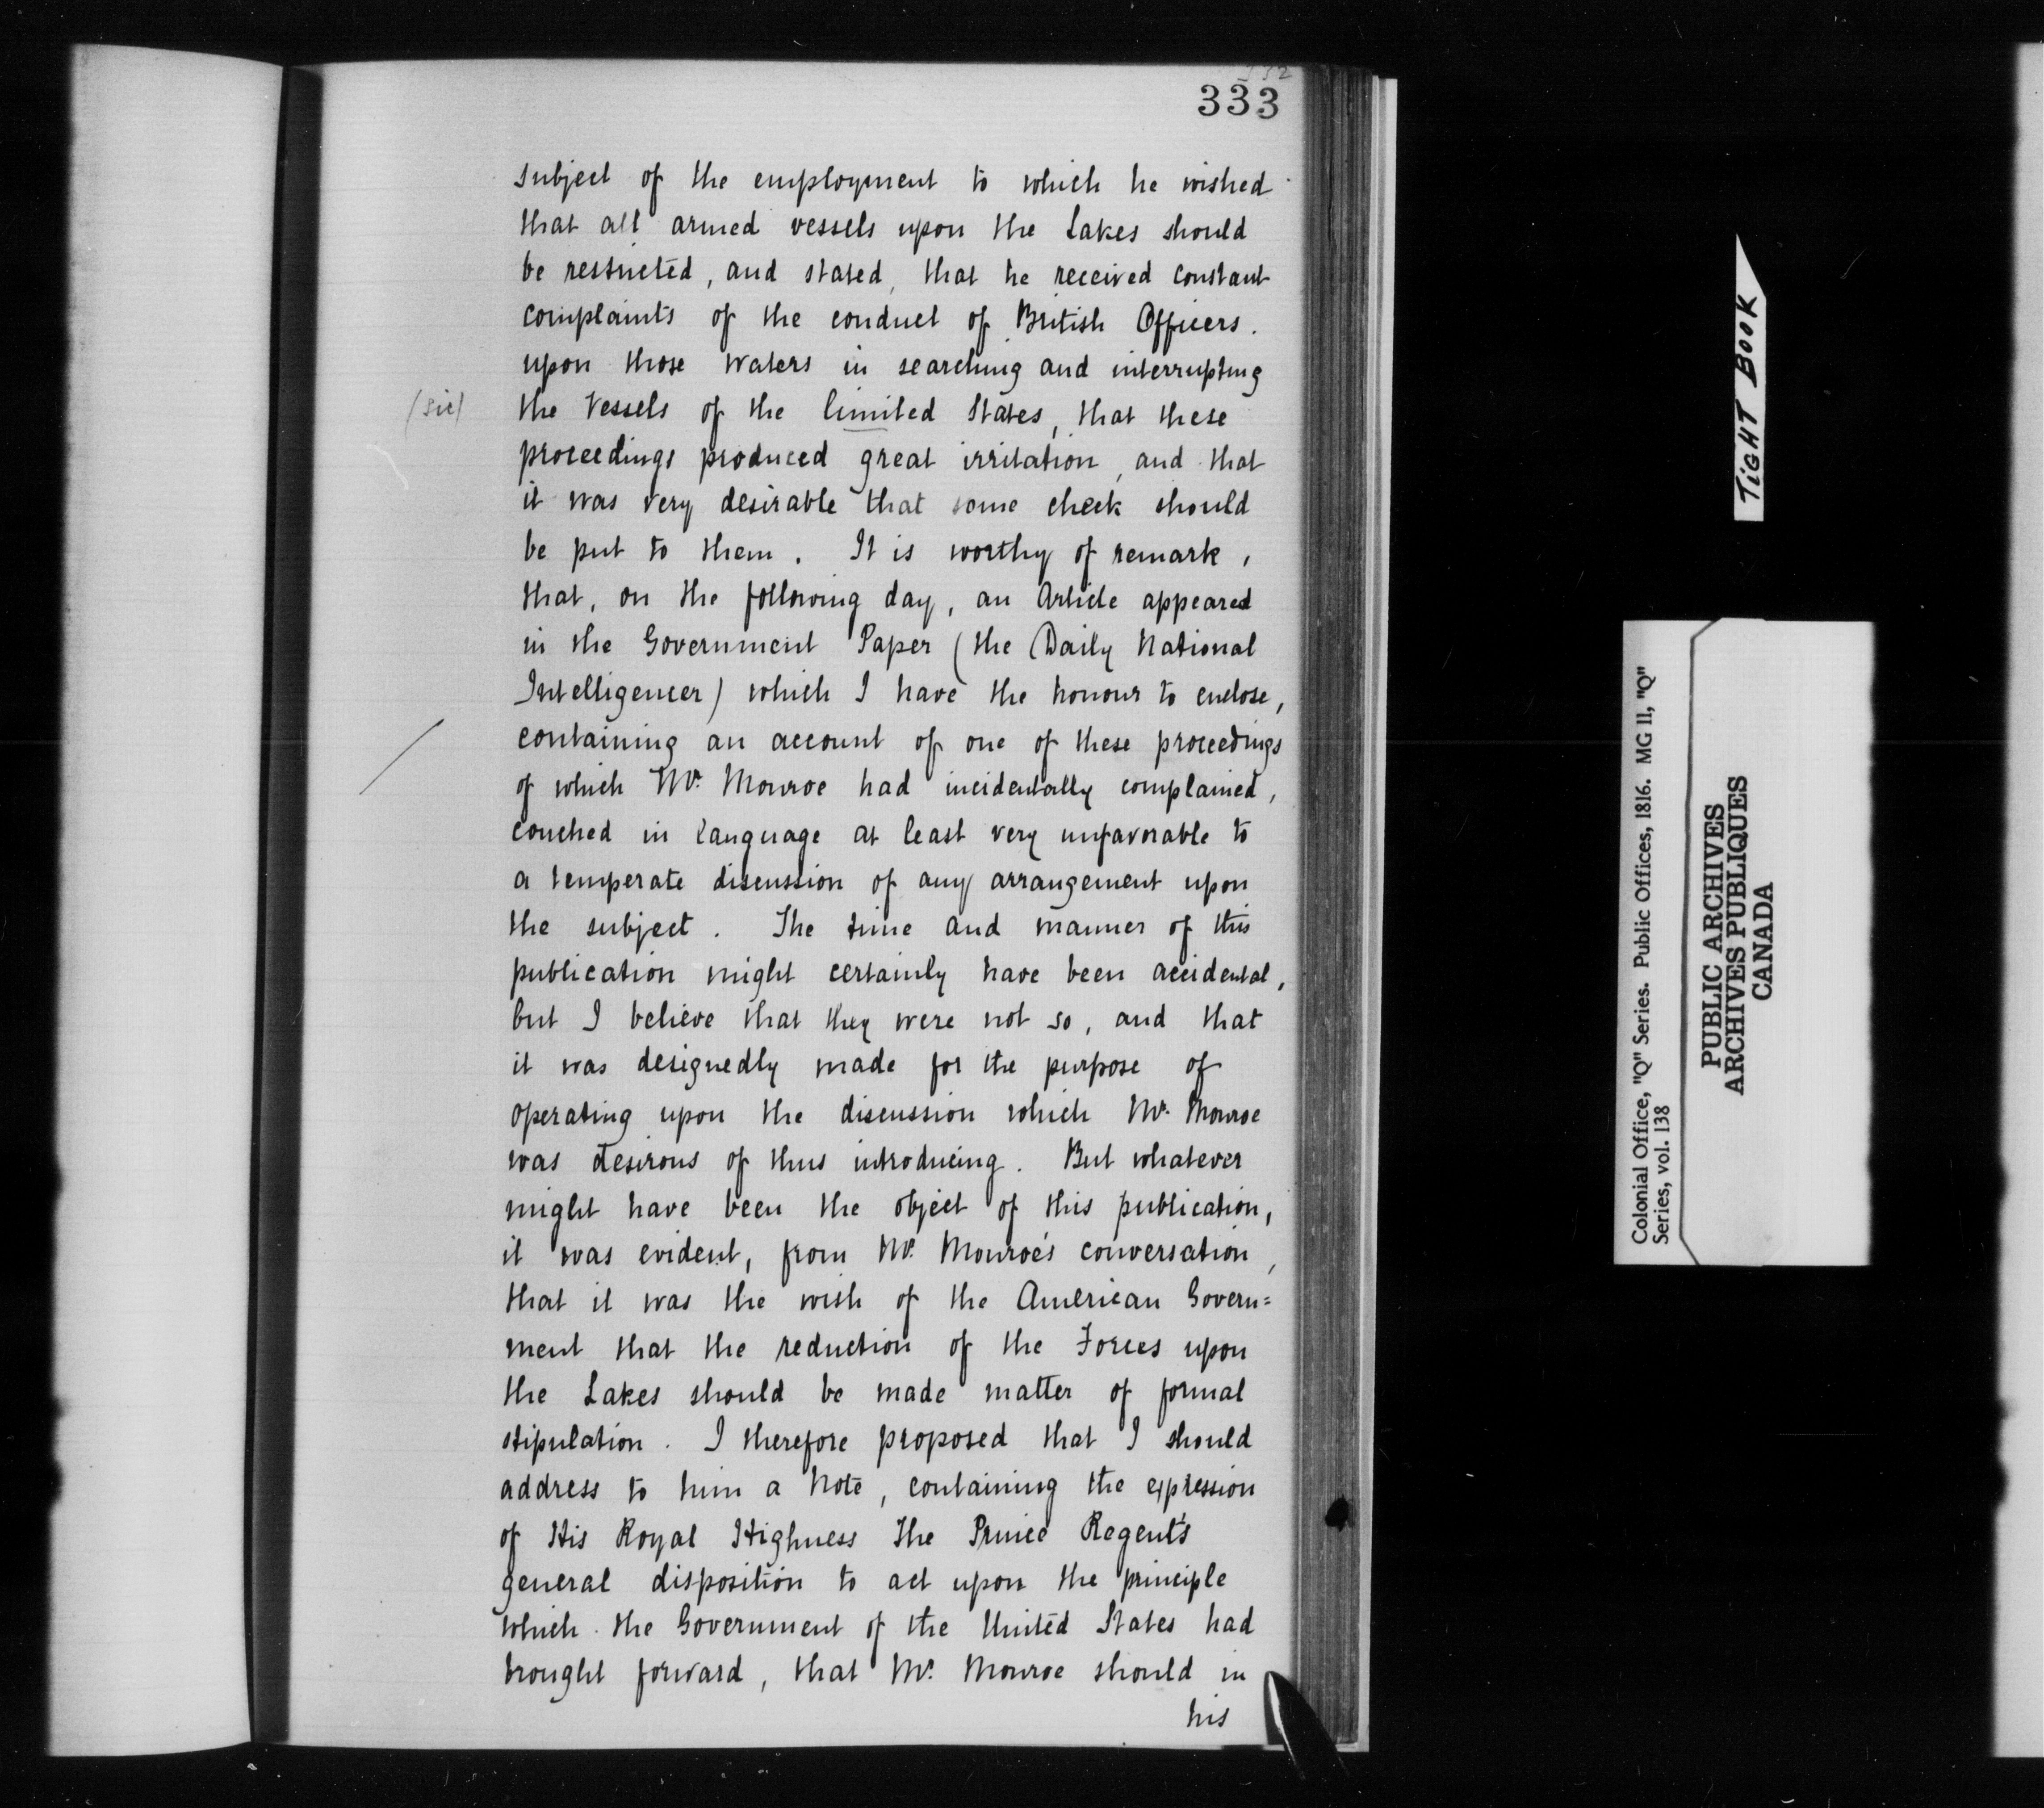 332
333
subject of the employment to which he wished
that all armed vessels upon the Lakes should
be restricted, and stated, that he received constant
complaints of the conduct of British Officers.
upon those waters in searching and interrupting
(sic) the Vessels of the limited States, that these
proceedings produced great irritation, and that
it was very desirable that some check should
be put to them. It is worthy of remark,
that, on the following day, an Article appeared
in the Government Paper (the Daily National
Intelligencer) which I have the honour to enclose,
containing an account of one of these proceedings
of which Mr. Monroe had incidentally complained,
couched in language at least very unfavorable to
a temperate discussion of any arrangement upon
the subject. The time and manner of this
publication might certainly have been accidental,
but I believe that they were not so, and that
it was designedly made for the purpose of
operating upon the discussion which Mr. Monroe
was desirous of thus introducing. But whatever
might have been the object of this publication,
it was evident, from Mr. Monroe's conversation,
that it was the wish of the American Govern=
ment that the reduction of the Forces upon
the Lakes should be made matter of formal
stipulation. I therefore proposed that I should
address to him a Note, containing the expression
of His Royal Highness The Prince Regent's
general disposition to act upon the principle
which the Government of the United States had
brought forward, that Mr. Monroe should in
his
TIGHT BOOK
Colonial Office, "Q" Series. Public Offices, 1816. MG 11, "Q"
Series, vol. 138
PUBLIC ARCHIVES
ARCHIVES PUBLIQUES
CANADA